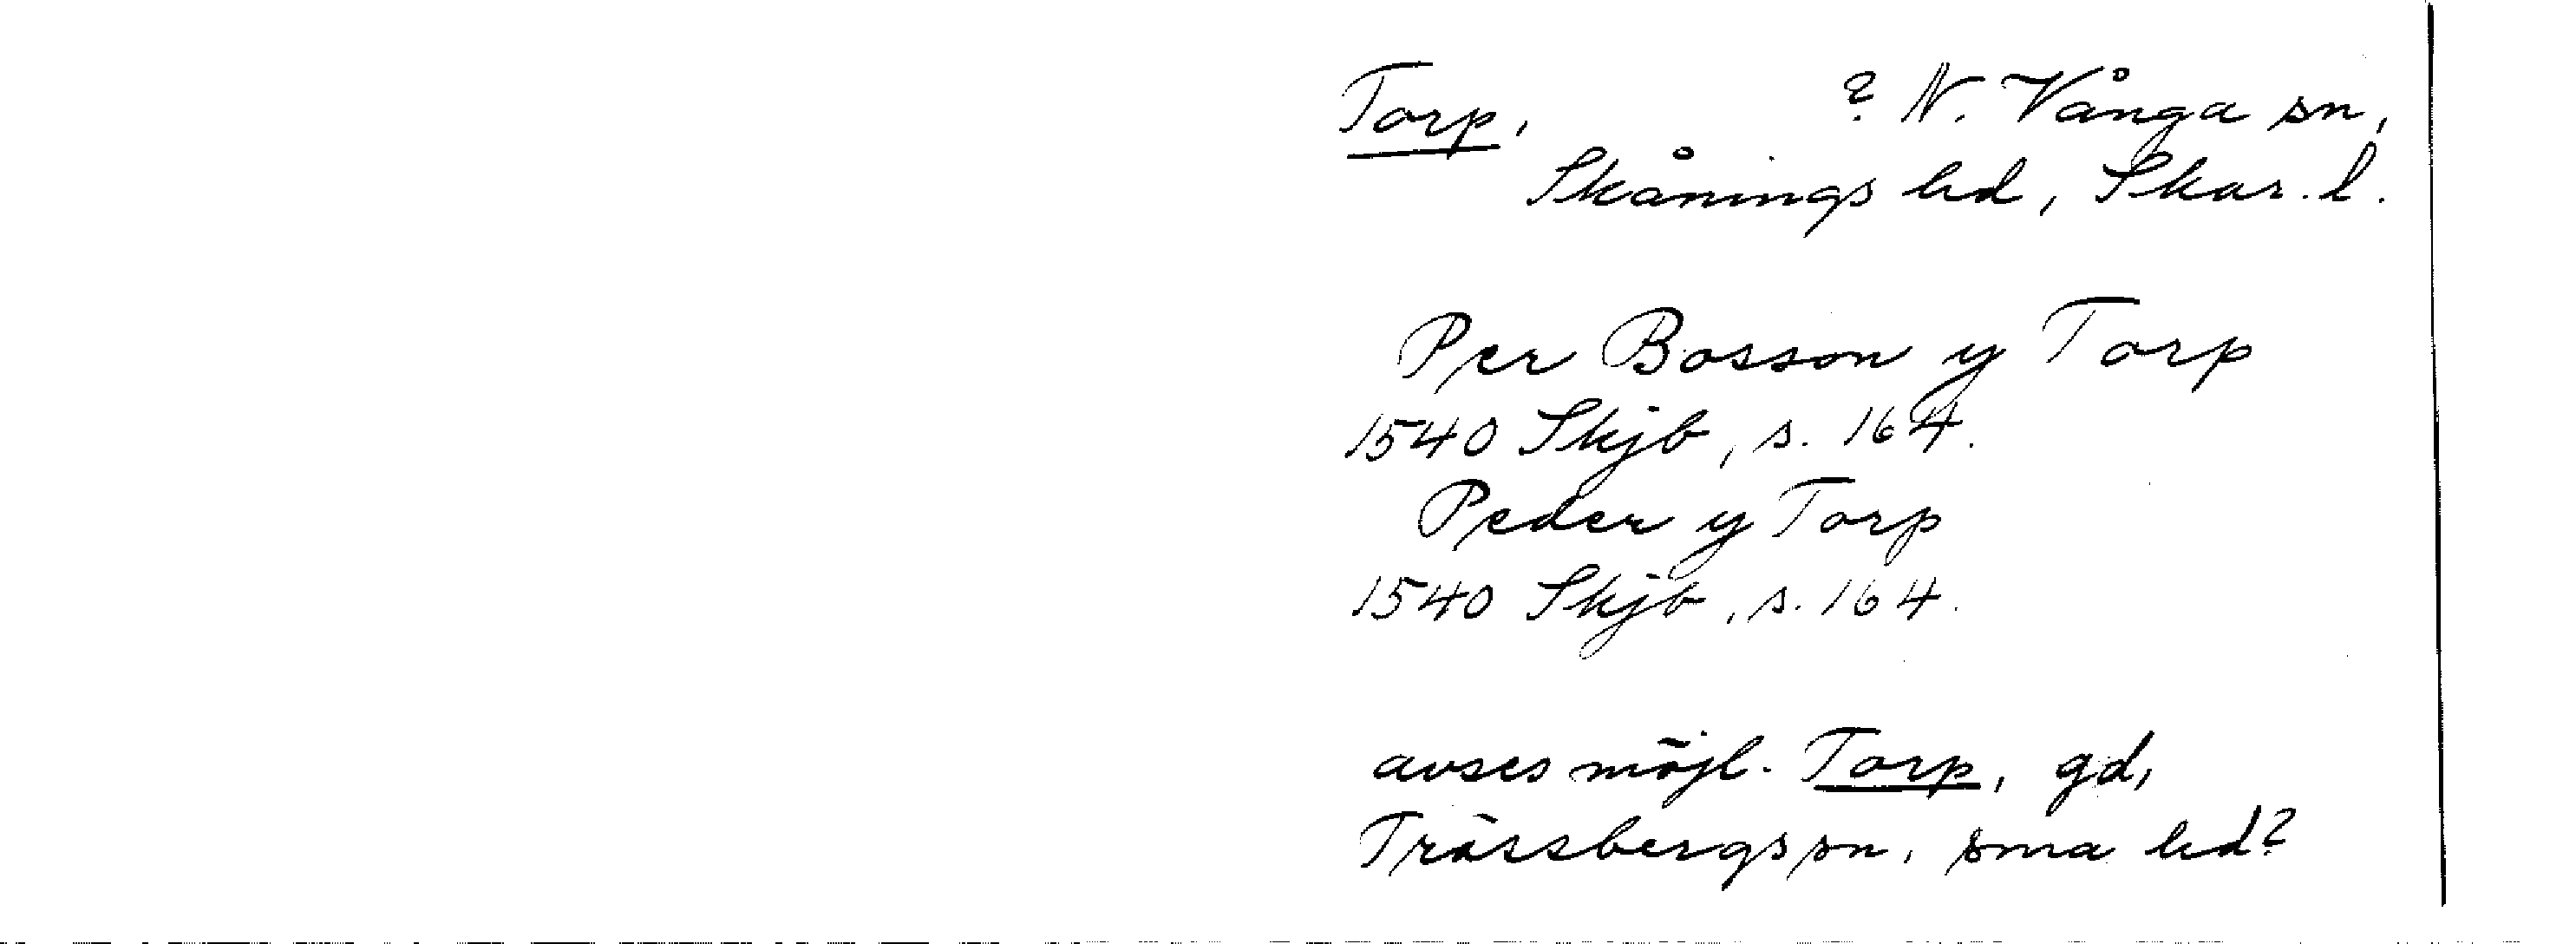 Torp, ? N. Vånga sn,
Skånings hd, Skar. l.
Per Bosson y Torp
1540 Skjb, s. 164.
Peder y Torp
1540 Skjb, s. 164.
avses möjl. Torp, gd,
Trässbergs sn, sma hd?